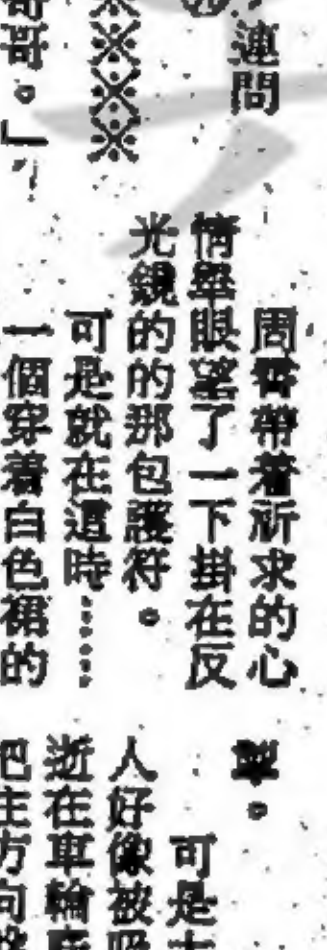 連問
※※※
哥。」
周蓉帶着祈求的心
情舉眼望了一下掛在反
光鏡的的那包護符。
可是就在這時……
一個穿着白色裙的
。
可是
人好像被
逝在車輪
把主方向